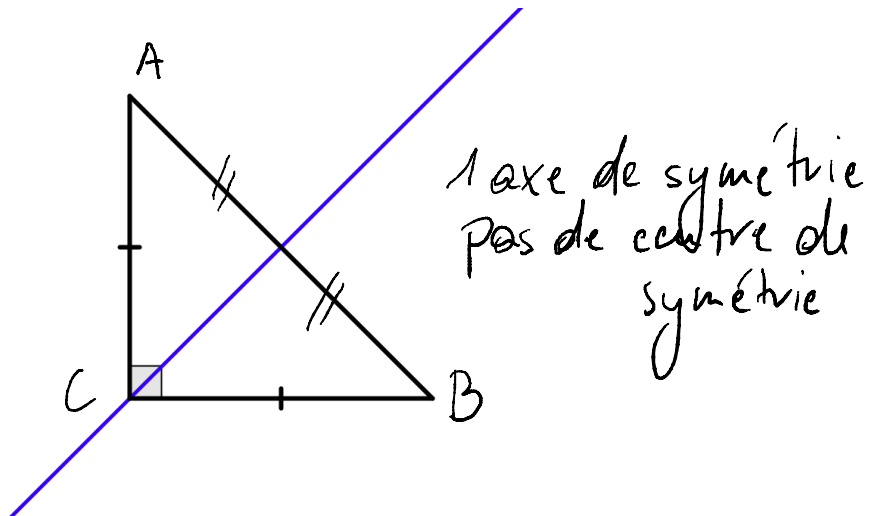 A
1 axe de symétrie
pas de centre de
symétrie
C
B